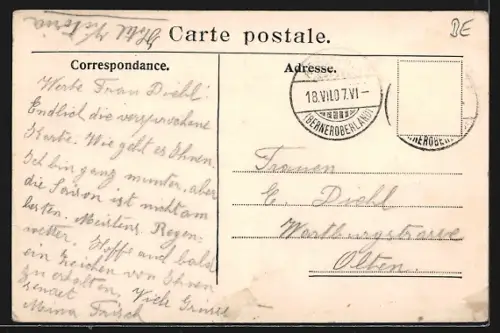 Hotel Victoria
BE
Carte postale.
Correspondance.
Adresse.
18.VII.07.VI-
(BERNEROBERLAND)
NEROBERLA
Werte Frau Diehl!
Endlich die versprochene
Karte. Wie geht es Ihnen.
Ich bin ganz munter, aber
die Saison ist nicht am
besten. Meistens Regen-
wetter. Hoffe auch bald
ein Zeichen von Ihnen
zu erhalten. Viele Grüsse
sendet
Mina Frisch
Frauen
E. Diehl
Wartburgstrasse
Olten.